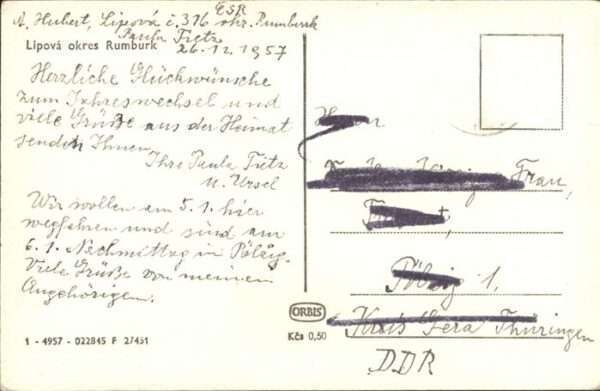 ČSR
A. Hubert, Lipová č. 316 okr. Rumburk
Paula Tietz
Lipová okres Rumburk
26.12.1957
Herzliche Glückwünsche
zum Jahreswechsel und
viele Grüße aus der Heimat
senden Ihnen
Ihre Paula Tietz
u. Ursel
Wir wollen am 5.1. hier
wegfahren und sind am
6.1. Nachmittag in Pölzig.
Viele Grüße von meinen
Angehörigen.
Frau,
Pölzig 1,
Kreis Gera Thüringen
DDR
ORBIS
Kčs 0,50
1 - 4957 - 022845 F 2/451